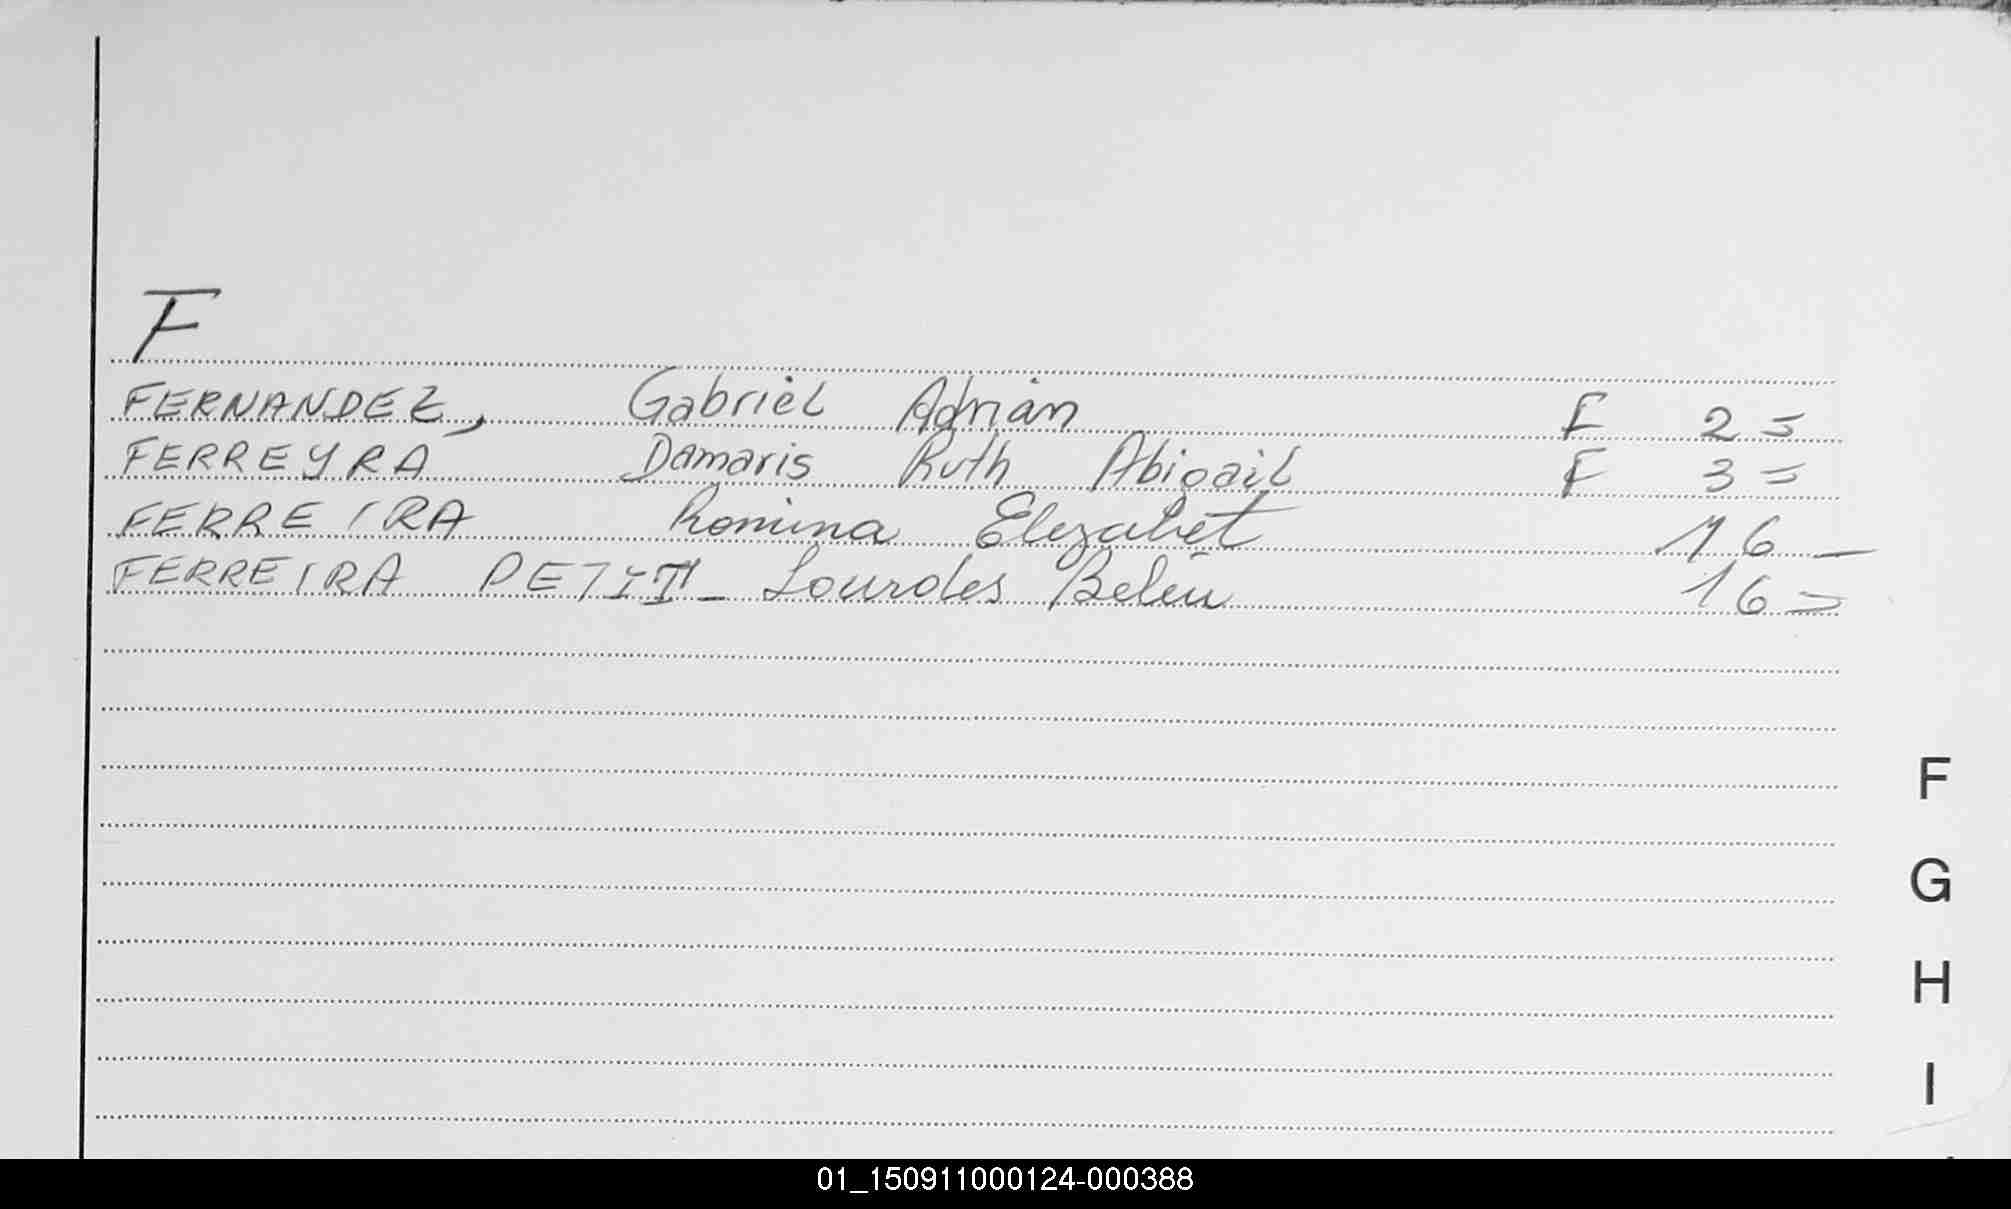 F
FERNANDEZ, Gabriel Adrian F 2=
FERREYRA Damaris Ruth Abigail F 3=
FERREIRA Romina Elezabet 16 -
FERREIRA PETIT - Lourdes Belén 16=
F
G
H
I
01_150911000124-000388